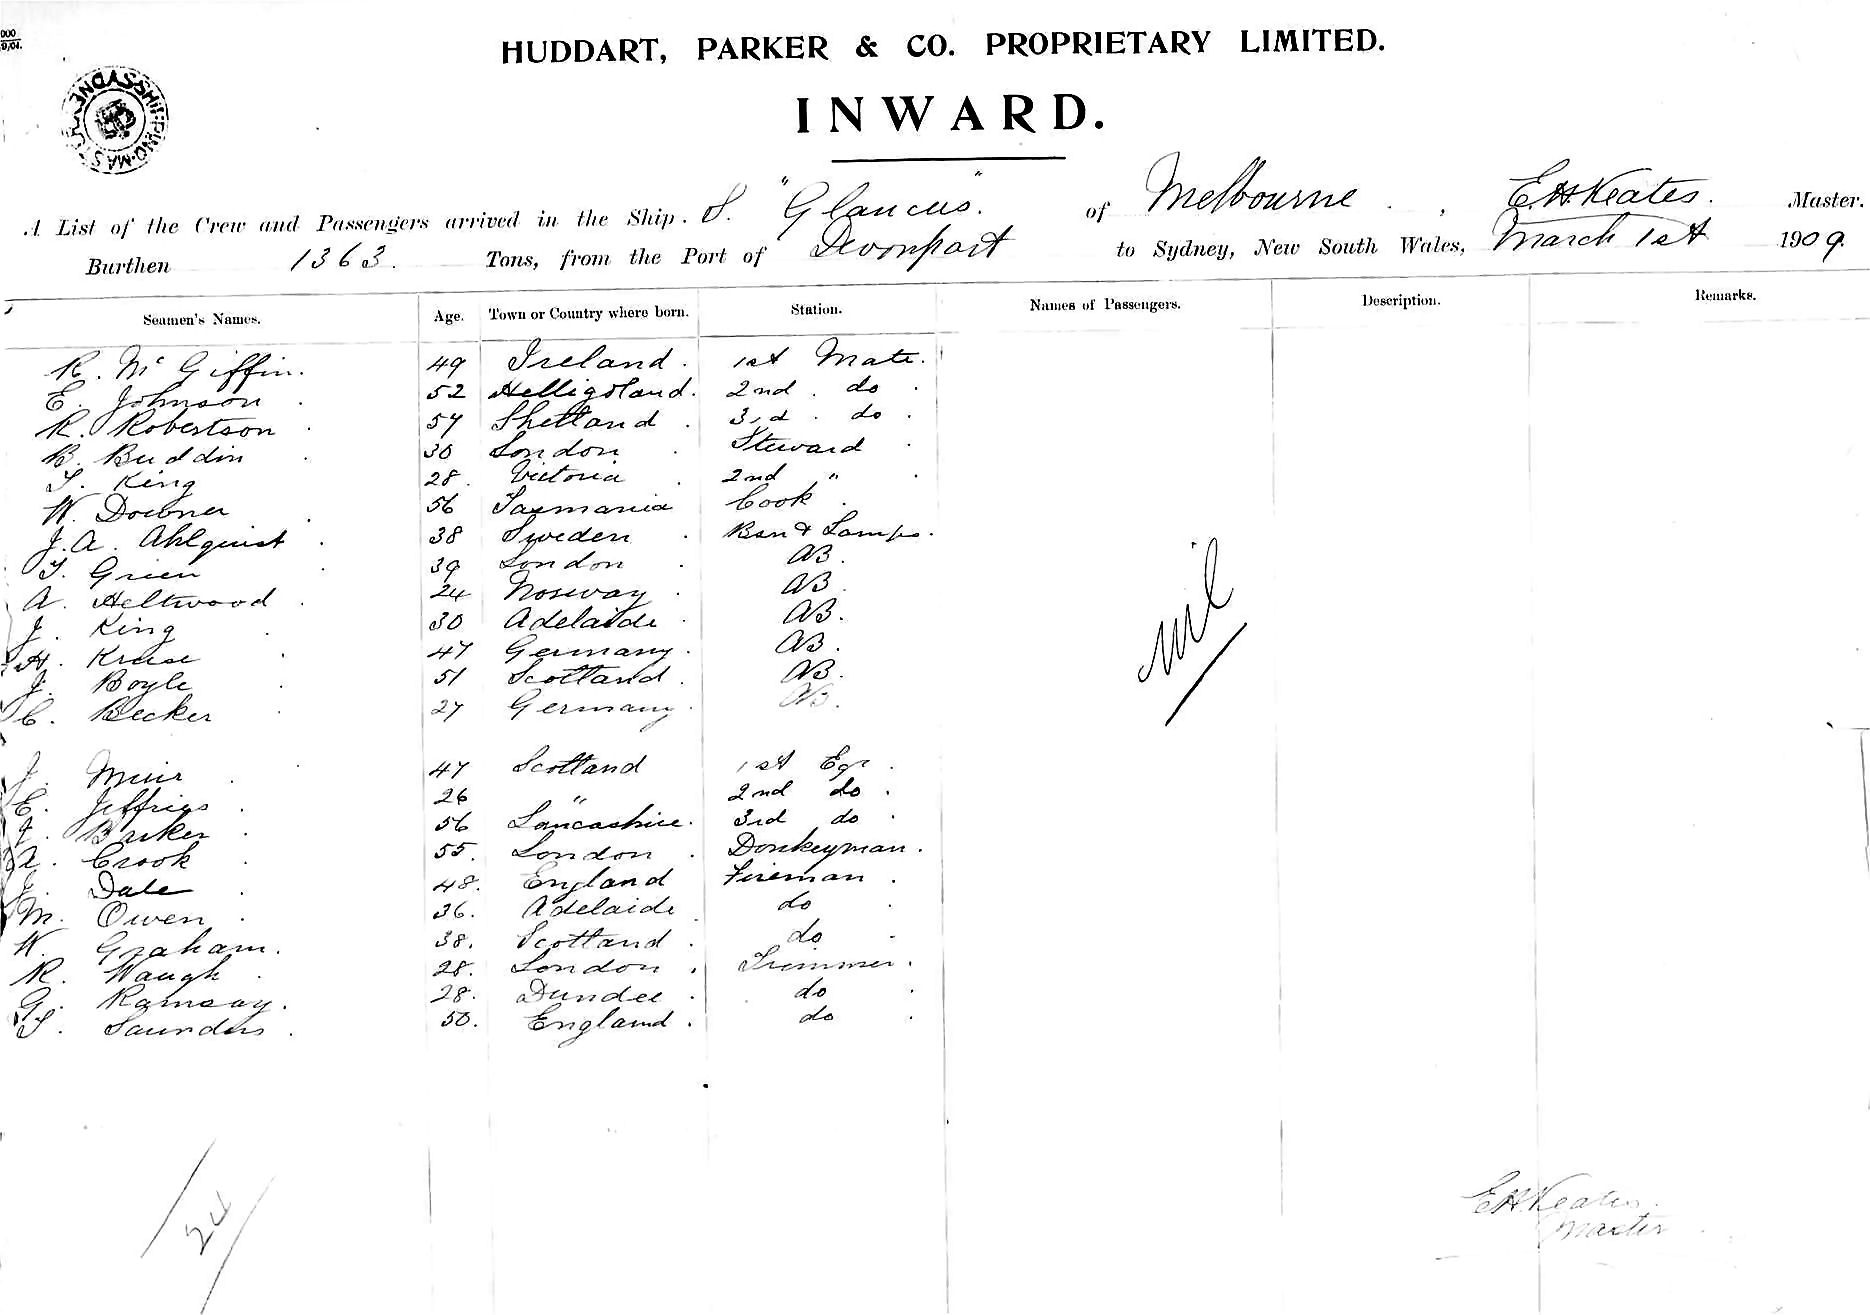 000
9/01.
SYDNEY SHIPPING MASTER
HUDDART, PARKER & CO. PROPRIETARY LIMITED.
INWARD.
A List of the Crew and Passengers arrived in the Ship. S. "Glaucus". of Melbourne . , E.H. Keates. Master.
Burthen 1363. Tons, from the Port of Devonport to Sydney, New South Wales, March 1st 1909.
Seamen's Names. Age. Town or Country where born. Station. Names of Passengers. Description. Remarks.
R. McGiffin. 49 Ireland. 1st Mate.
E. Johnson . 52 Helligoland. 2nd . do .
R. Robertson . 57 Shetland . 3rd . do .
B. Buddin . 30 London . Steward .
T. King 28. Victoria . 2nd " .
W. Doebner . 56 Tasmania Cook .
J.A. Ahlquist . 38 Sweden . Bsn & Lamps.
T. Green . 39 London . AB.
A. Heltwood . 24 Norway . AB.
J. King . 30 Adelaide . AB.
H. Kruse . 47 Germany. AB.
J. Boyle . 51 Scotland . AB.
C. Becker . 27 Germany. AB.
nil
J. Muir . 47 Scotland 1st Egr .
E. Jeffries . 26 " 2nd do .
Barker . 56 Lancashire. 3rd do .
A. Crook . 55. London . Donkeyman .
J. Dale . 48. England Fireman .
M. Owen . 36. Adelaide . do .
W. Graham. 38. Scotland . do .
R. Waugh . 28. London . Trimmer .
G. Ramsay. 28. Dundee . do .
T. Saunders . 50. England . do .
24
E.H. Keates.
Master